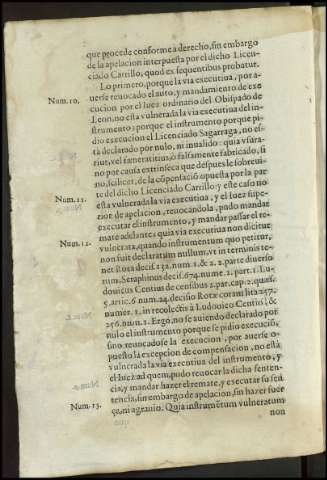 que procede conforme a derecho, sin embargo
de la apelacion interpuesta por el dicho Licen-
ciado Carrillo, quod ex sequentibus probatur.
Num. 10.
Lo primero, porque la via executiua, por a-
uerse reuocado el auto, y mandamiento de exe
cucion por el Iuez ordinario del Obispado de
Leon, no esta vulnerada la via executiua del in-
strumento; porque el instrumento porque pi-
dio execucion el Licenciado Sagarraga, no es-
tà declarado por nulo, ni inualido: quia vsura-
rius, vel fœneratitius, ò falsamente fabricado, si
no por causa extrinseca que despues le sobreui-
no, scilicet, de la cõpensaciõ opuesta por la par
te del dicho Licenciado Carrillo: y este caso no
Num. 11.
esta vulnerada la via executiua, y el Iuez supe-
rior de apelacion, reuocandola, pudo mandar
executar el instrumento, y mandar passar el re-
mate adelante: quia via executiua non dicitur
Num. 12.
vulnerata, quando instrumentum quo petitur,
non fuit declaratum nullum, vt in terminis te-
net Rota decis. 232. num. 1. & 2. 2. parte diuerso
rum, Seraphinus decis. 674. nume. 2. part. 1. Lu-
douicus Centius de censibus 2. par. cap. 2. quæs.
5. artic. 6. num. 24. decisio Rotæ coram 257.
numer. 1. in recolectis à Ludouico Centio, &
256. num. 1. Ergo, no se auiendo declarado por
nulo el instrumento porque se pidio execuciõ,
sino reuocadose la execucion, por auerse o-
puesto la excepcion de compensacion, no està
vulnerada la via executiua del instrumento, y
el Iuez ad quem, pudo reuocar la dicha senten-
cia, y mandar hazer el remate, y executar su sen
tencia, sin embargo de apelacion, sin hazer fuer
Num. 13.
ça, ni agrauio. Quia instrumẽtum vulneratum
non